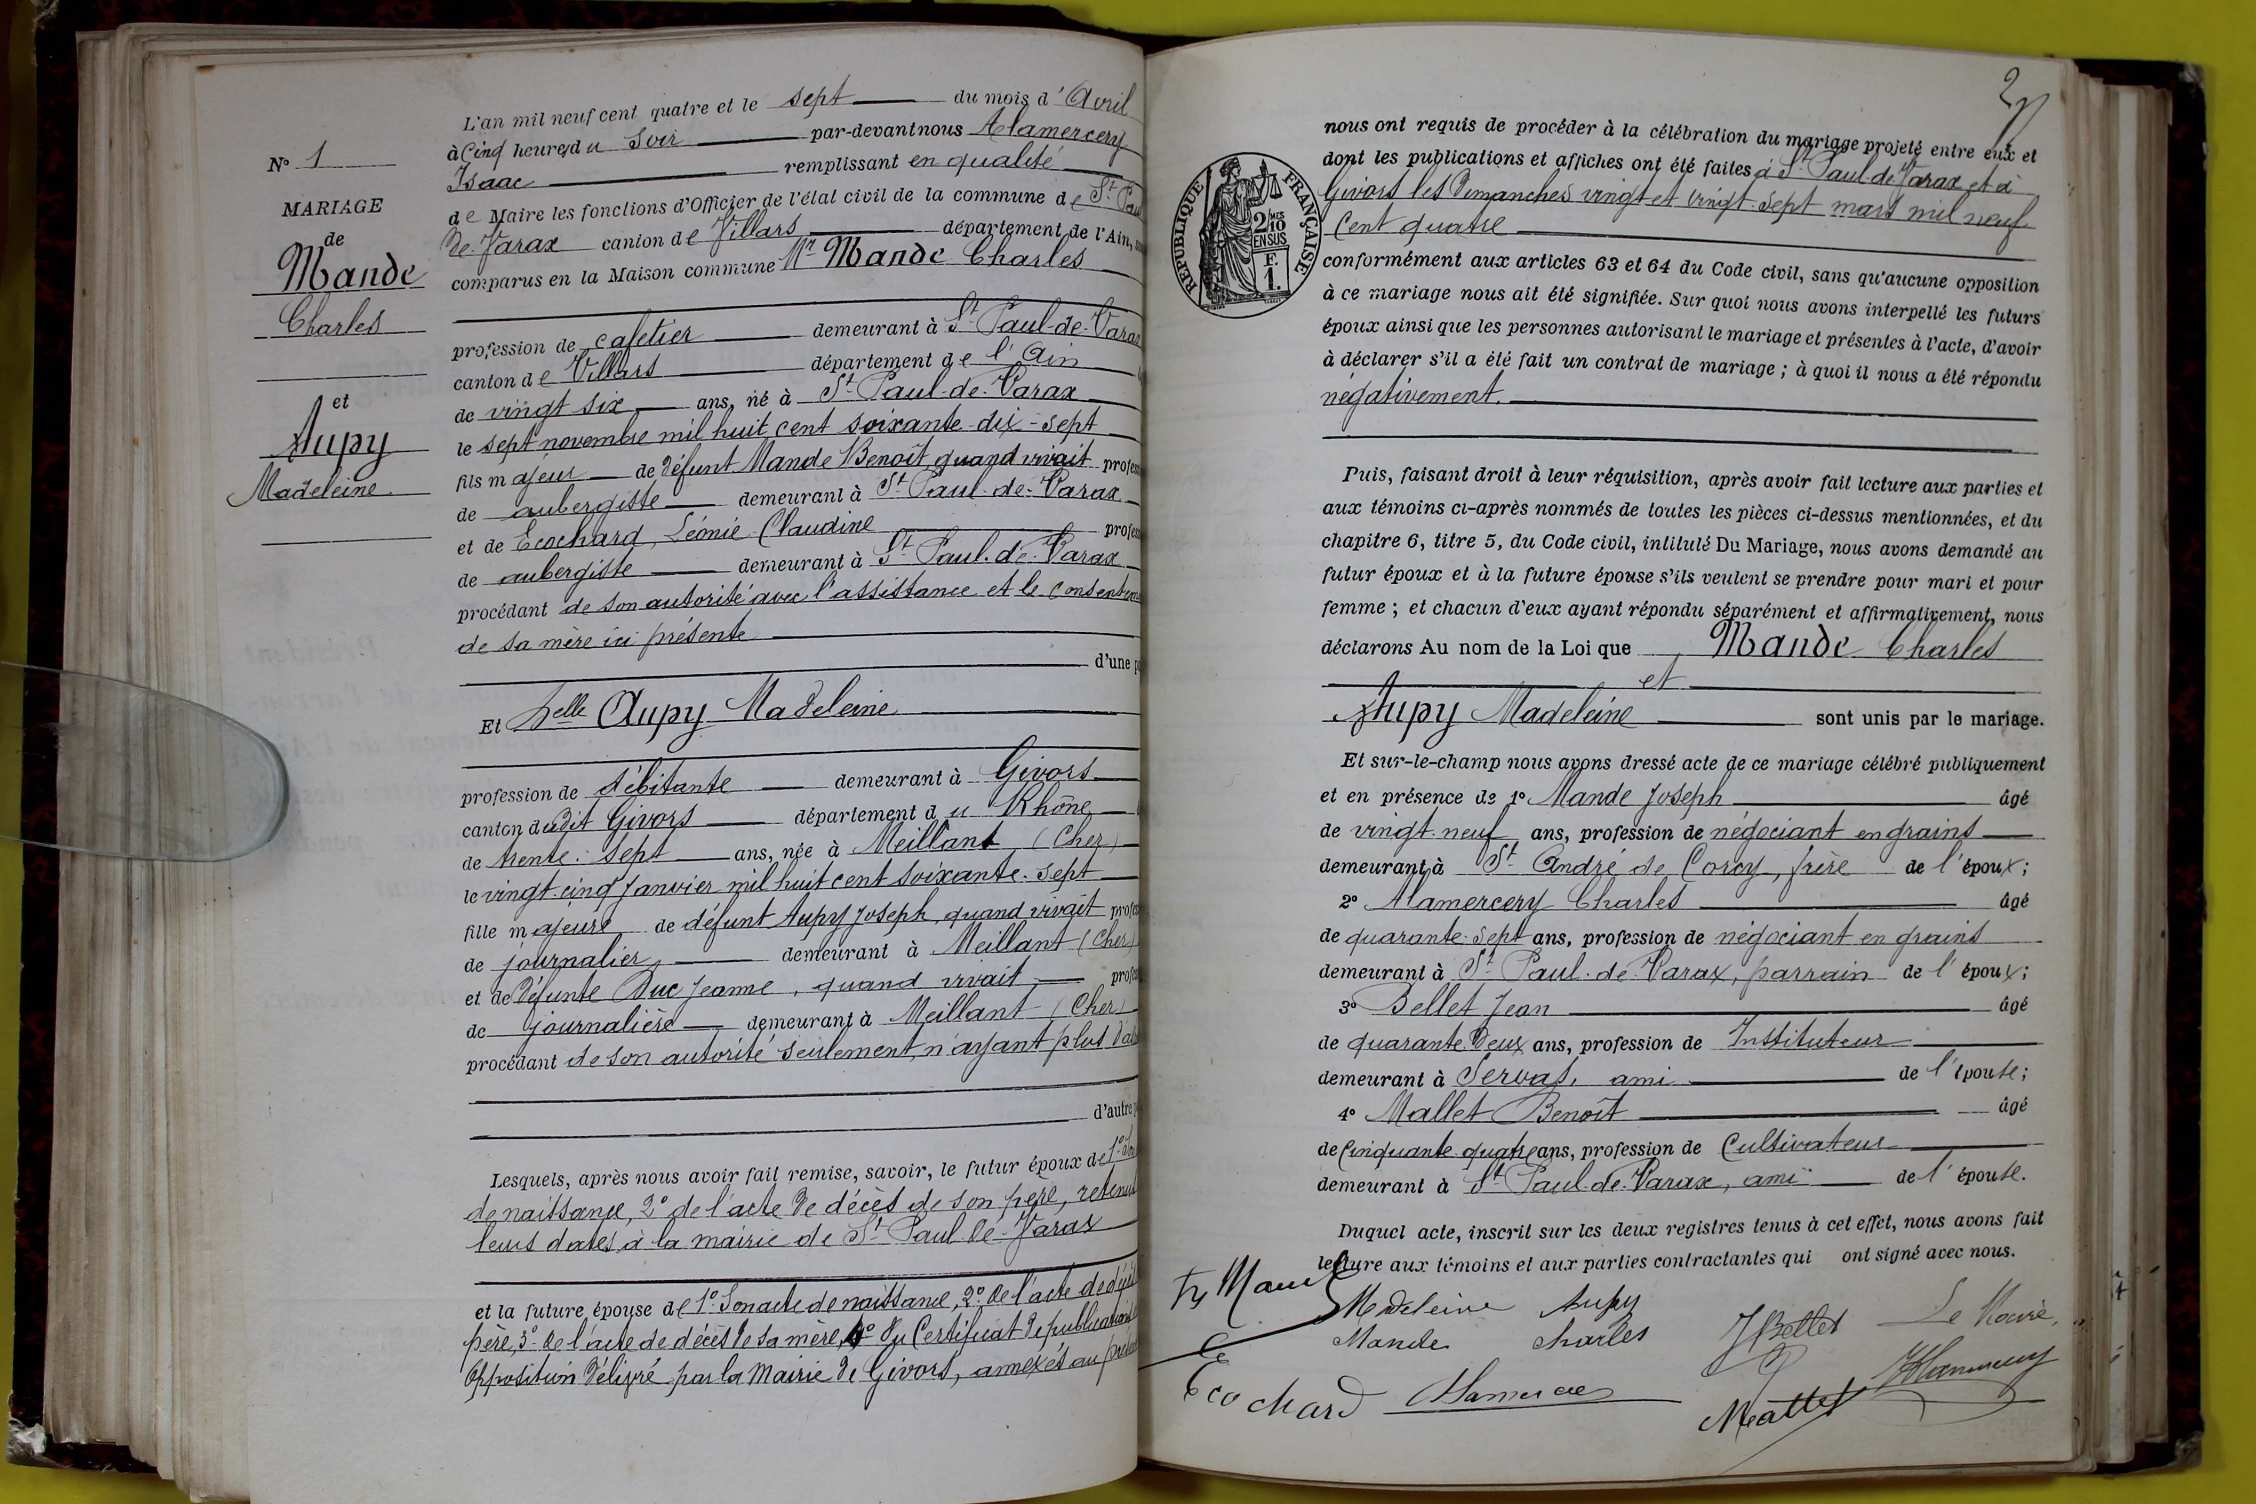 N° 1
MARIAGE
de
Mande
Charles
et
Aupy
Madeleine
L'an mil neuf cent quatre et le sept du mois d'Avril
à Cinq heures du Soir par-devant nous Alamercery
Isaac remplissant en qualité
de Maire les fonctions d'Officier de l'état civil de la commune de St Paul
de Varax canton de Villars département de l'Ain,
comparus en la Maison commune Mr Mande Charles
profession de cafetier demeurant à St Paul-de-Varax
canton de Villars département de l'Ain
de vingt six ans, né à St Paul-de-Varax
le sept novembre mil huit cent soixante-dix-sept
fils majeur de défunt Mande Benoît quand vivait profes
de aubergiste demeurant à St Paul-de-Varax
et de Ecochard, Léonie Claudine profes
de aubergiste demeurant à St Paul-de-Varax
procédant de son autorité avec l'assistance et le consentem
de sa mère ici présente
d'une p
Et Delle Aupy Madeleine
profession de débitante demeurant à Givors
canton dudit Givors département du Rhône
de trente-sept ans, née à Meillant (Cher)
le vingt-cinq Janvier mil huit cent soixante-sept
fille majeure de défunt Aupy Joseph, quand vivait profes
de journalier demeurant à Meillant (Cher)
et de défunte Duc Jeanne, quand vivait profes
de journalière demeurant à Meillant (Cher)
procédant de son autorité seulement n'ayant plus d'a
d'autre p
Lesquels, après nous avoir fait remise, savoir, le futur époux de 1°
de naissance, 2° de l'acte de décès de son père, retenus
leurs dates à la mairie de St Paul-de-Varax
et la future épouse de 1° Son acte de naissance, 2° de l'acte de décès
père, 3° de l'acte de décès de sa mère, 4° du Certificat de publication
opposition délivré par la Mairie de Givors, annexés au présent
2
RÉPUBLIQUE FRANÇAISE
2/10
EN SUS
F.
1.
nous ont requis de procéder à la célébration du mariage projeté entre eux et
dont les publications et affiches ont été faites à St Paul-de-Varax et à
Givors les Dimanches vingt et vingt-sept mars mil neuf
Cent quatre
conformément aux articles 63 et 64 du Code civil, sans qu'aucune opposition
à ce mariage nous ait été signifiée. Sur quoi nous avons interpellé les futurs
époux ainsi que les personnes autorisant le mariage et présentes à l'acte, d'avoir
à déclarer s'il a été fait un contrat de mariage ; à quoi il nous a été répondu
négativement.
Puis, faisant droit à leur réquisition, après avoir fait lecture aux parties et
aux témoins ci-après nommés de toutes les pièces ci-dessus mentionnées, et du
chapitre 6, titre 5, du Code civil, intitulé Du Mariage, nous avons demandé au
futur époux et à la future épouse s'ils veulent se prendre pour mari et pour
femme ; et chacun d'eux ayant répondu séparément et affirmativement, nous
déclarons Au nom de la Loi que Mande Charles
et
Aupy Madeleine sont unis par le mariage.
Et sur-le-champ nous avons dressé acte de ce mariage célébré publiquement
et en présence de 1° Mande Joseph âgé
de vingt-neuf ans, profession de négociant en grains
demeurant à St André de Corcy, frère de l'époux ;
2° Alamercery Charles âgé
de quarante-sept ans, profession de négociant en grains
demeurant à St Paul-de-Varax, parrain de l'époux ;
3° Bellet Jean âgé
de quarante deux ans, profession de Instituteur
demeurant à Servas, ami de l'épouse ;
4° Mallet Benoît âgé
de Cinquante quatre ans, profession de Cultivateur
demeurant à St Paul-de-Varax, ami de l'épouse.
Duquel acte, inscrit sur les deux registres tenus à cet effet, nous avons fait
lecture aux témoins et aux parties contractantes qui ont signé avec nous.
Madeleine Aupy
Mande Charles
JBellet
Le Maire,
Ecochard
Mallet